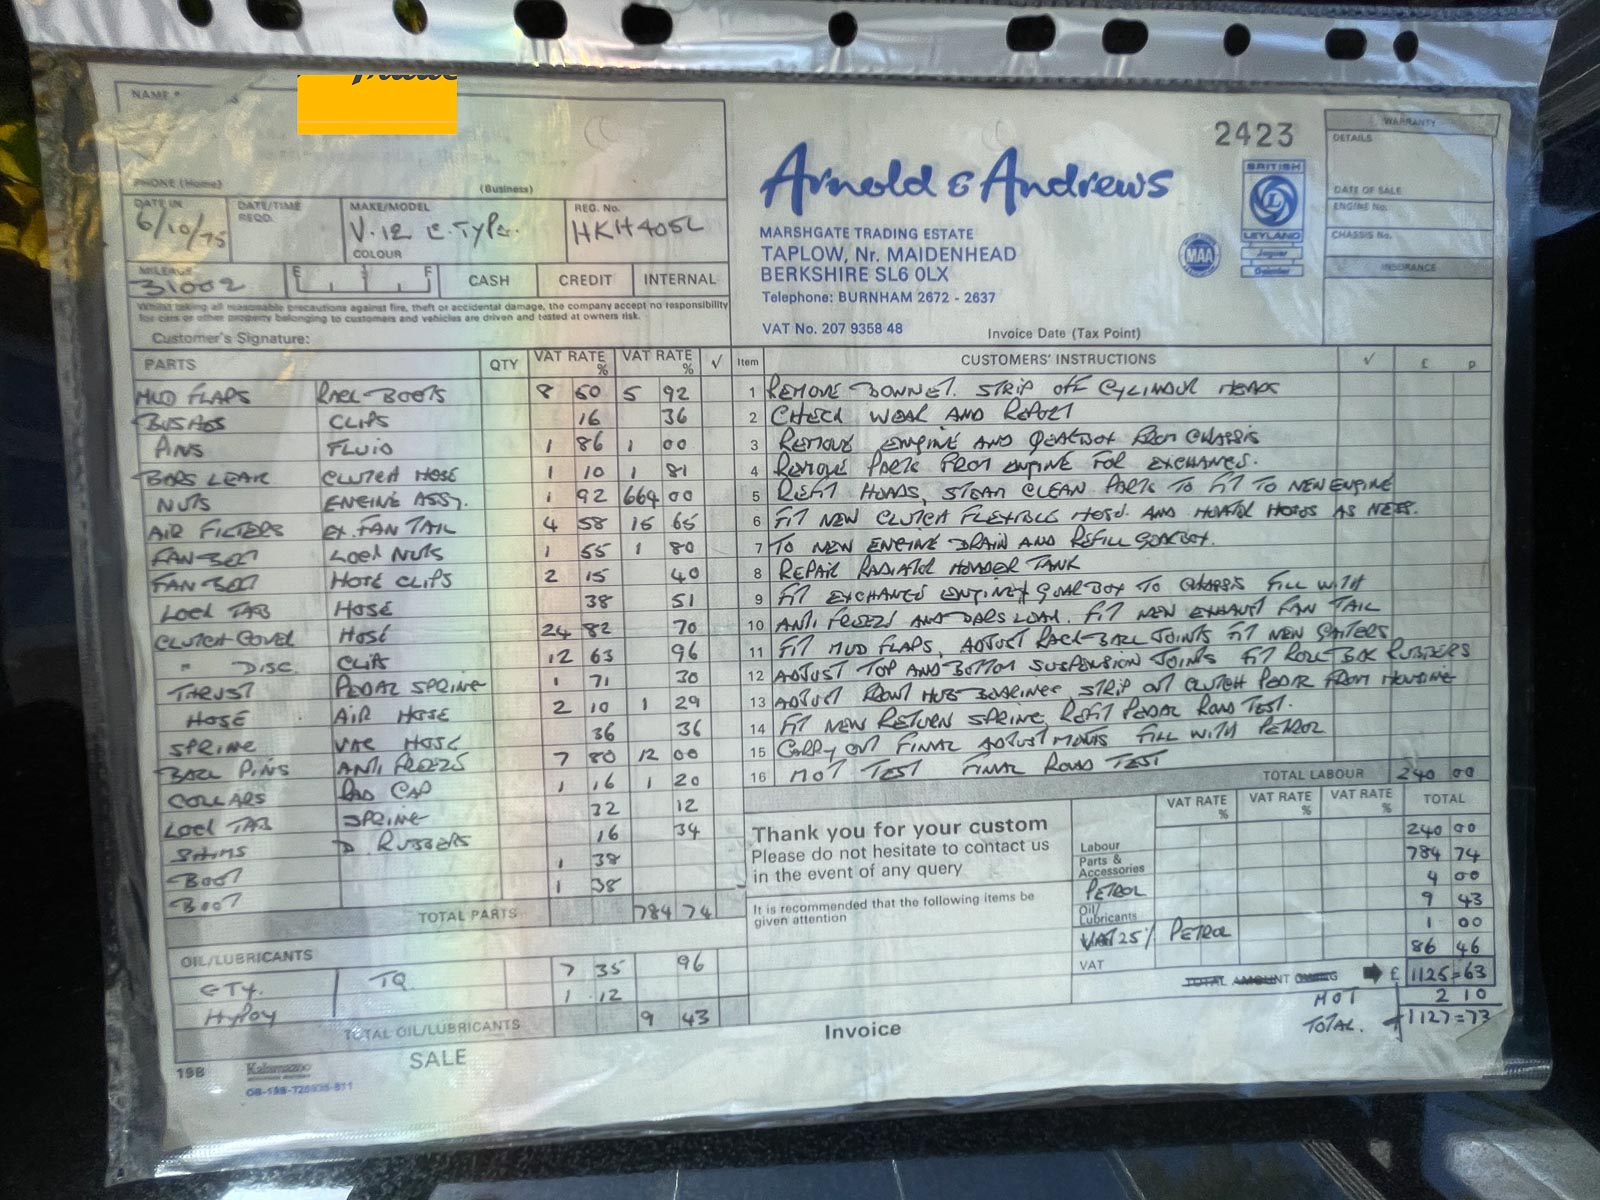 NAME
2423
WARRANTY
DETAILS
Arnold & Andrews
BRITISH
LEYLAND
Jaguar
Daimler
MAA
PHONE (Home) (Business)
DATE OF SALE
DATE IN DATE/TIME REQD. MAKE/MODEL REG. No.
6/10/75 V.12 E.TYPE. HKH405L
COLOUR
ENGINE No.
CHASSIS No.
INSURANCE
MARSHGATE TRADING ESTATE
TAPLOW, Nr. MAIDENHEAD
BERKSHIRE SL6 0LX
Telephone: BURNHAM 2672 - 2637
VAT No. 207 9358 48 Invoice Date (Tax Point)
MILEAGE E ½ F CASH CREDIT INTERNAL
31002
Whilst taking all reasonable precautions against fire, theft or accidental damage, the company accept no responsibility
for cars or other property belonging to customers and vehicles are driven and tested at owners risk.
Customer's Signature:
PARTS QTY VAT RATE % VAT RATE % ✓
MUD FLAPS RACK-BOOTS 8 60 5 92
BUSHES CLIPS 16 36
PINS FLUID 1 86 1 00
BARS LEAK CLUTCH HOSE 1 10 1 81
NUTS ENGINE ASSY. 1 92 664 00
AIR FILTERS ex. FAN TAIL 4 58 15 65
FAN BELT LOCK NUTS 1 55 1 80
FAN BELT HOSE CLIPS 2 15 40
LOCK TAB HOSE 38 51
CLUTCH COVER HOSE 24 82 70
" DISC. CLIP 12 63 96
THRUST PEDAL SPRING 1 71 30
HOSE AIR HOSE 2 10 1 29
SPRING VAC HOSE 36 36
BALL PINS ANTI FREEZE 7 80 12 00
COLLARS RAD CAP 1 16 1 20
LOCK TAB SPRING 32 12
SHIMS D RUBBERS 16 34
BOOT 1 38
BOOT 1 38
TOTAL PARTS 784 74
OIL/LUBRICANTS
GTX. TQ 7 35 96
HYPOY 1 .12
TOTAL OIL/LUBRICANTS 9 43
19B Kalamazoo SALE
Item CUSTOMERS' INSTRUCTIONS ✓ £ p
1 REMOVE BONNET. STRIP OFF CYLINDER HEADS
2 CHECK WEAR AND REPORT
3 REMOVE ENGINE AND GEARBOX FROM CHASSIS
4 REMOVE PARTS FROM ENGINE FOR EXCHANGE.
5 REFIT HEADS, STEAM CLEAN PARTS TO FIT TO NEW ENGINE
6 FIT NEW CLUTCH FLEXIBLE HOSE. AND HEATER HOSES AS NESS.
7 TO NEW ENGINE DRAIN AND REFILL GEARBOX.
8 REPAIR RADIATOR HEADER TANK
9 FIT EXCHANGE ENGINE & GEARBOX TO CHASSIS FILL WITH
10 ANTI FREEZE AND BARS LEAK. FIT NEW EXHAUST FAN TAIL
11 FIT MUD FLAPS, ADJUST RACK BALL JOINTS FIT NEW GAITERS
12 ADJUST TOP AND BOTTOM SUSPENSION JOINTS FIT ROLL BOX RUBBERS
13 ADJUST FRONT HUB BEARINGS, STRIP OUT CLUTCH PEDAL FROM HOUSING
14 FIT NEW RETURN SPRING, REFIT PEDAL ROAD TEST.
15 CARRY OUT FINAL ADJUSTMENTS FILL WITH PETROL
16 MOT TEST FINAL ROAD TEST
TOTAL LABOUR 240 00
VAT RATE % VAT RATE % VAT RATE % TOTAL
Thank you for your custom
Please do not hesitate to contact us
in the event of any query
It is recommended that the following items be
given attention
Labour 240 00
Parts & Accessories 784 74
PETROL 4 00
Oil/Lubricants 9 43
VAT 25% PETROL 1 00
VAT 86 46
TOTAL AMOUNT OWING £ 1125=63
MOT 2 10
TOTAL. 1127=73
Invoice